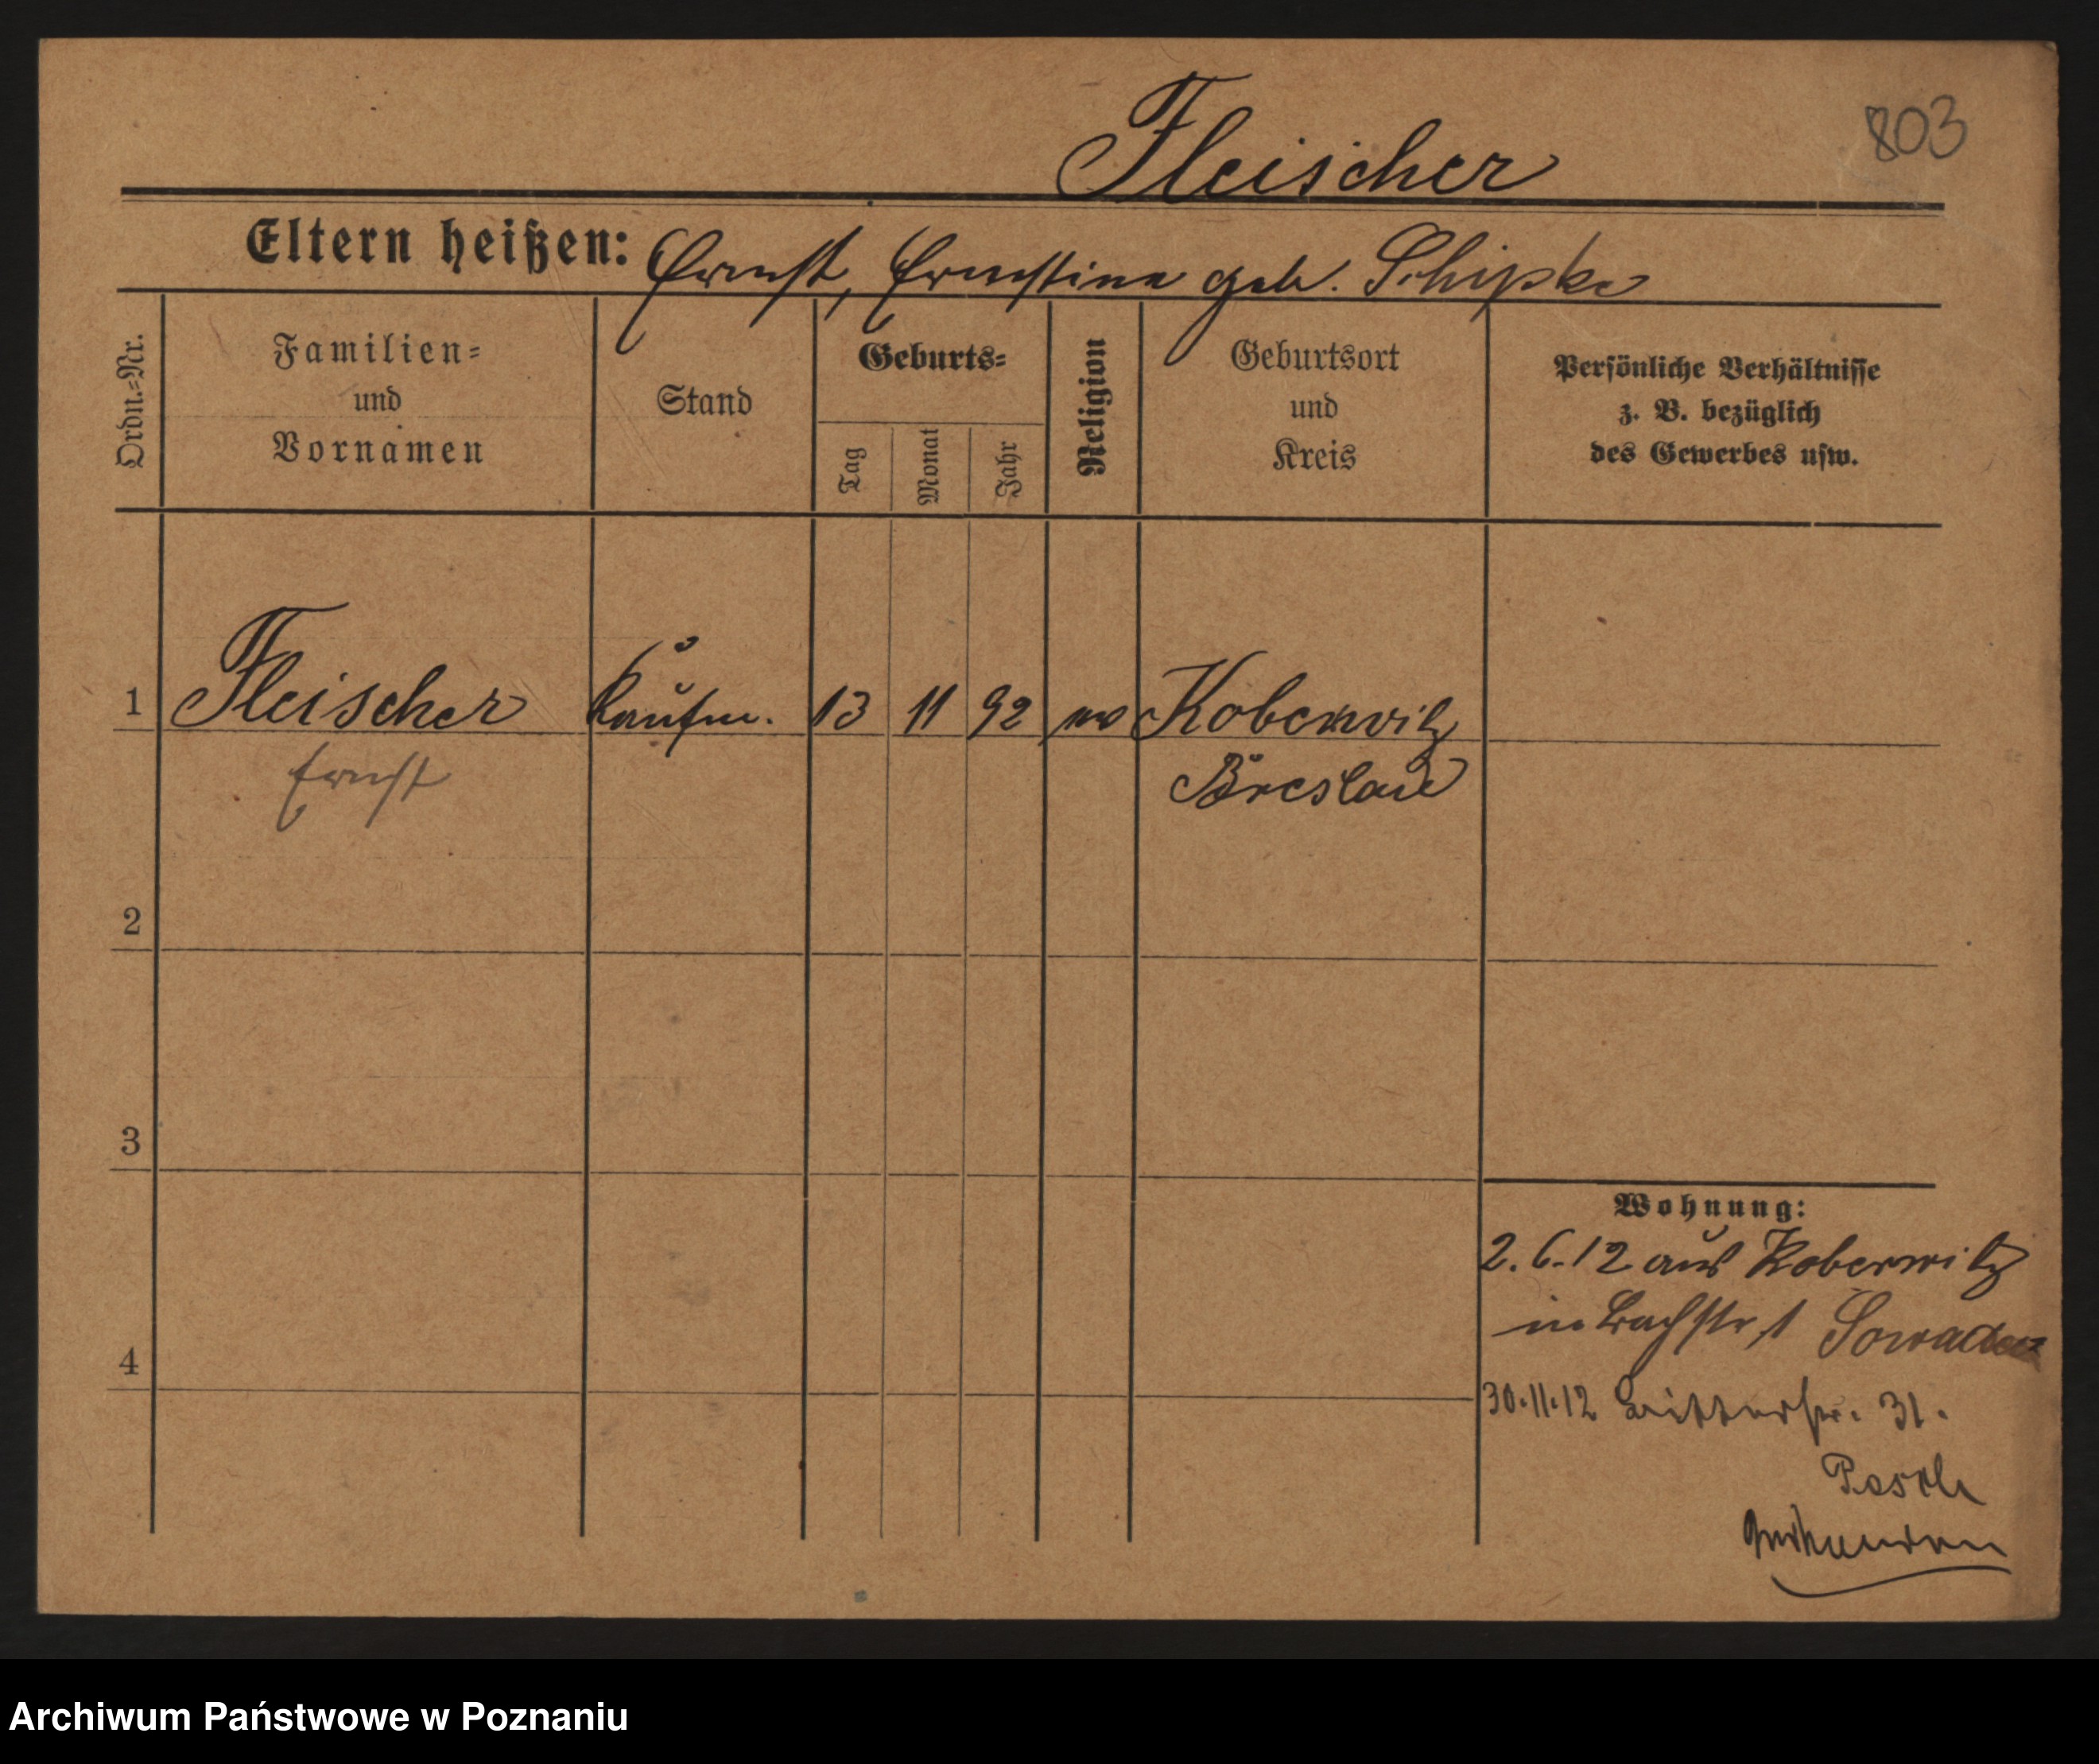 803
Fleischer
Eltern heißen: Ernst, Ernstine geb. Schipke
Ordn.=Nr.
Familien=
und
Vornamen
Stand
Geburts=
Tag
Monat
Jahr
Religion
Geburtsort
und
Kreis
Persönliche Verhältnisse
z. B. bezüglich
des Gewerbes usw.
1 Fleischer Kaufm. 13 11 92 ev Koberwitz
Ernst Breslau
2
3
4
Wohnung:
2.6.12 aus Koberwitz
in Bachstr 1
30.11.12 Ritterstr. 31.
Archiwum Państwowe w Poznaniu